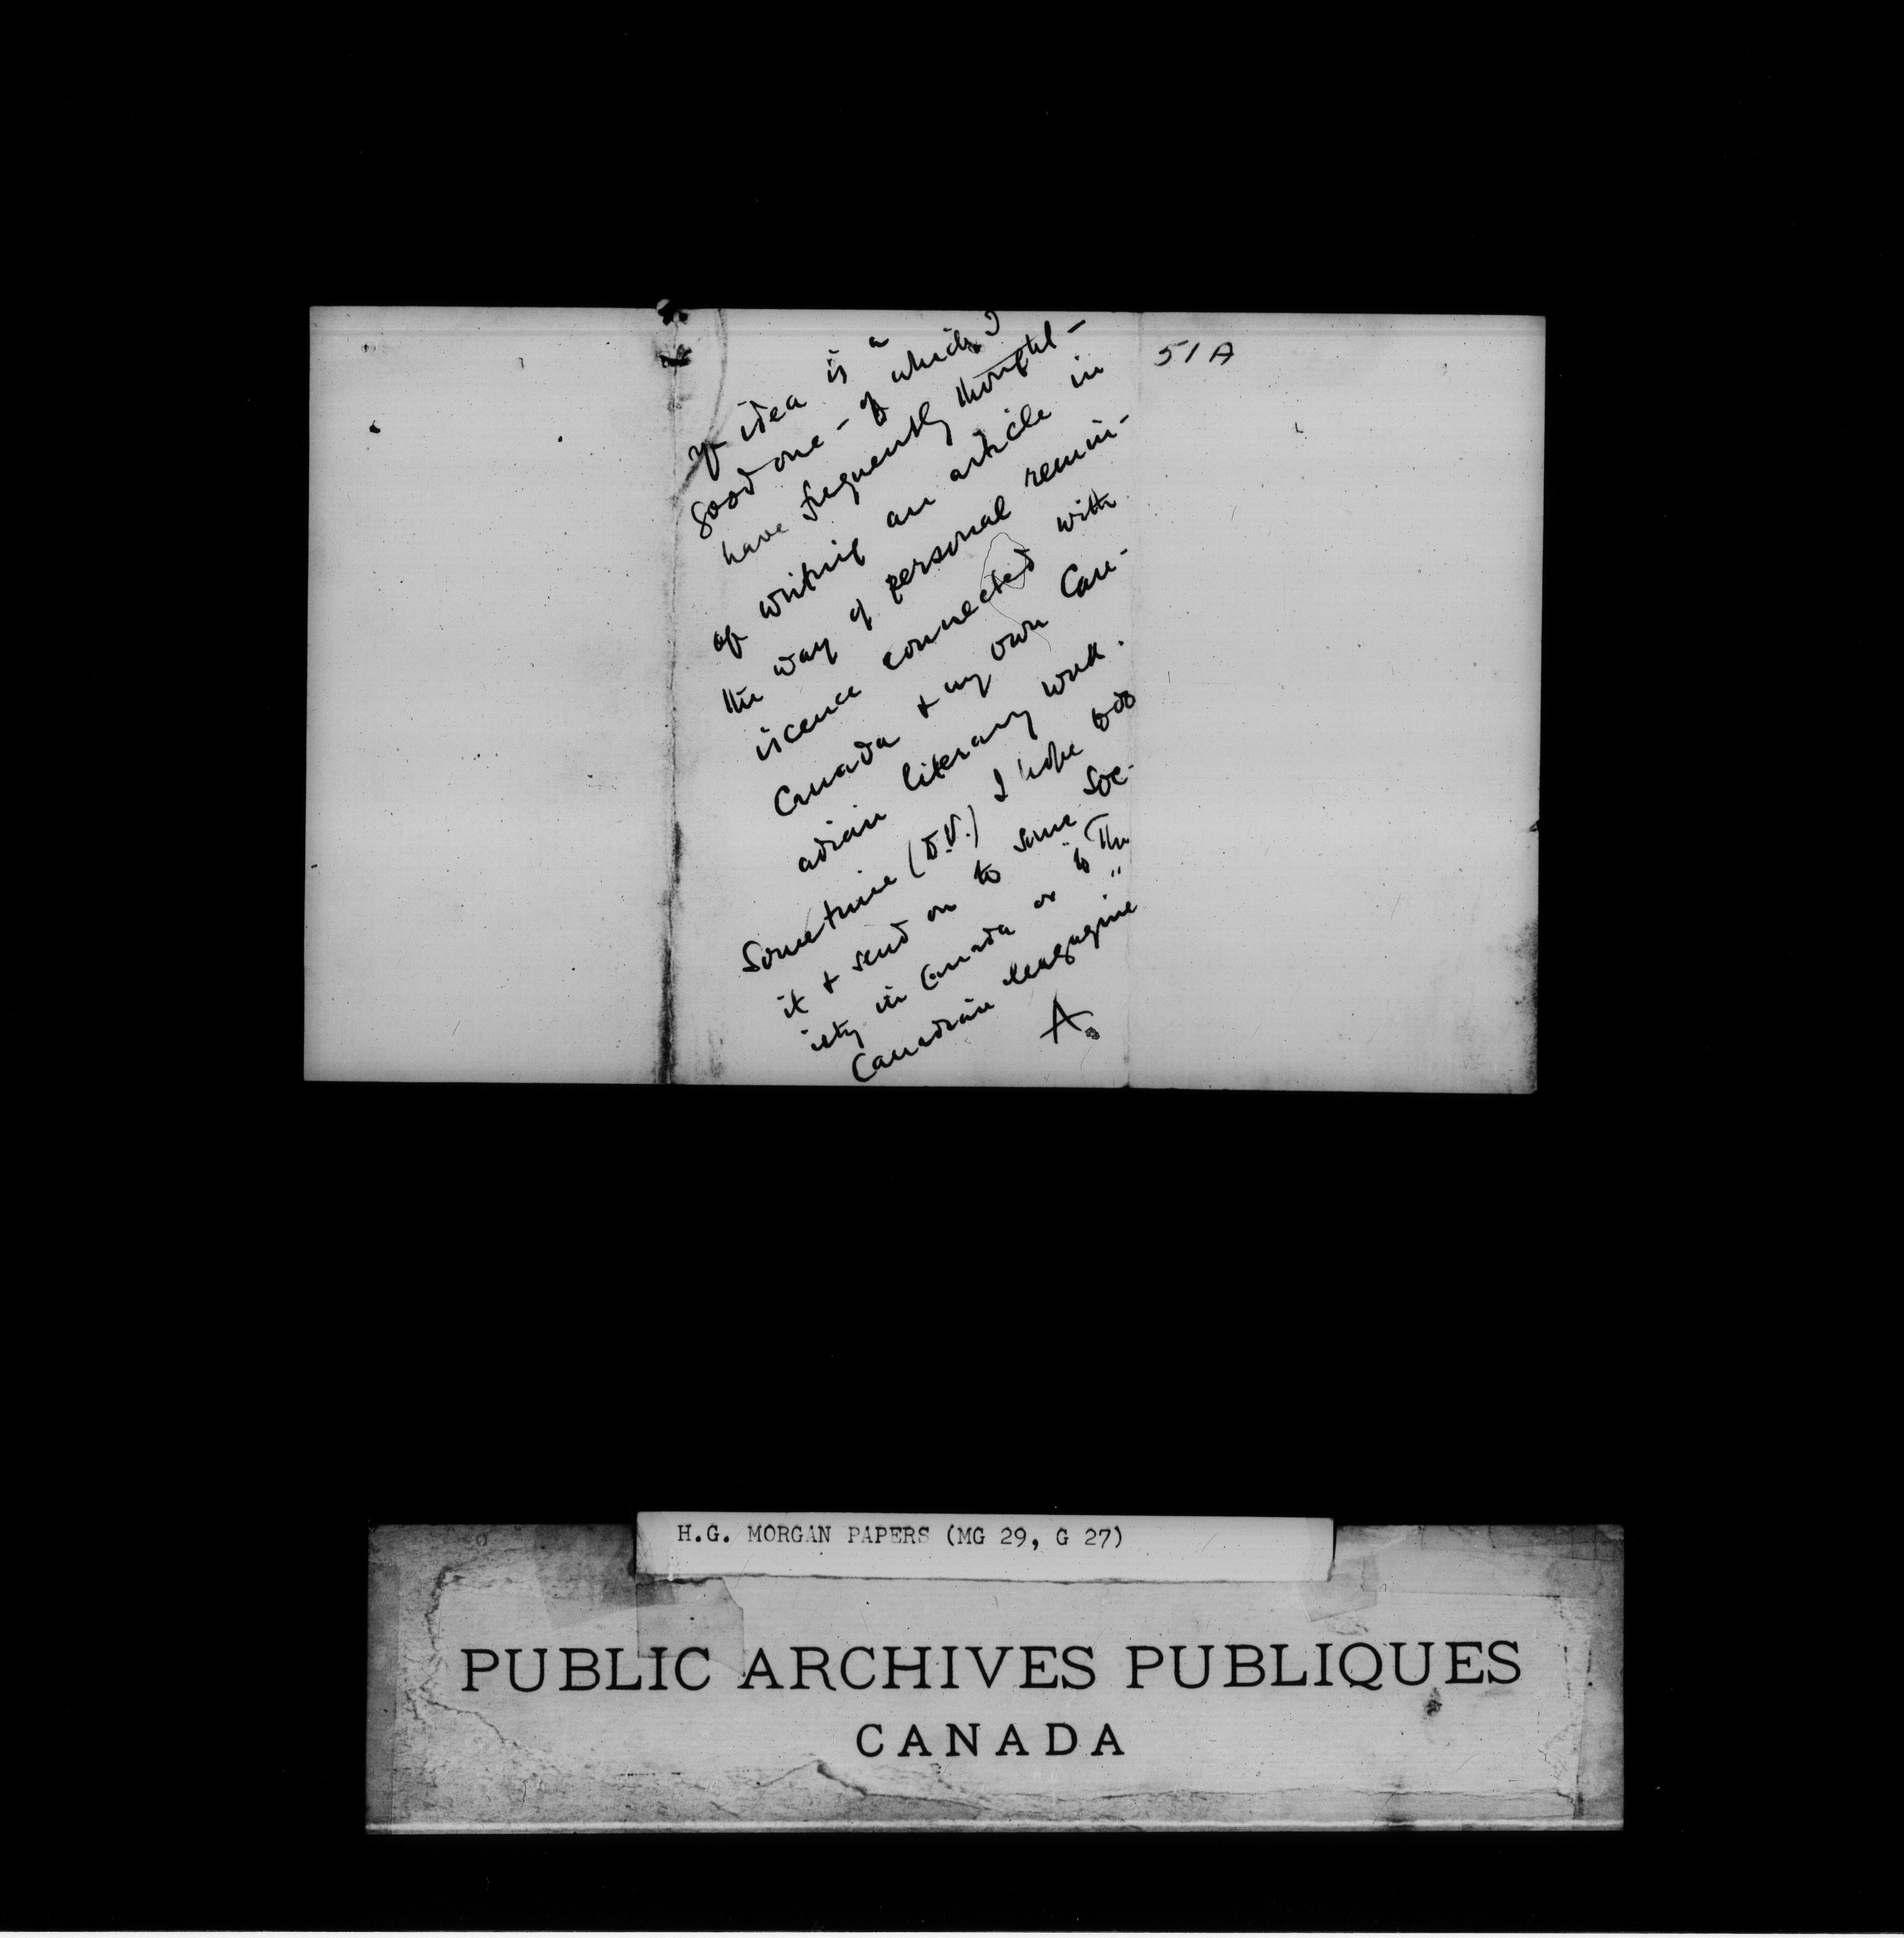 yr idea is a
good one - of which I
have frequently thought -
of writing an article in
the way of personal remin-
iscence connected with
Canada & my own Can-
adian literary work.
Sometime (D.V.) I hope to do
it & send on to some Soc-
iety in Canada or to "The
Canadian Magazine"
A.
51A
H.G. MORGAN PAPERS (MG 29, G 27)
PUBLIC ARCHIVES PUBLIQUES
CANADA